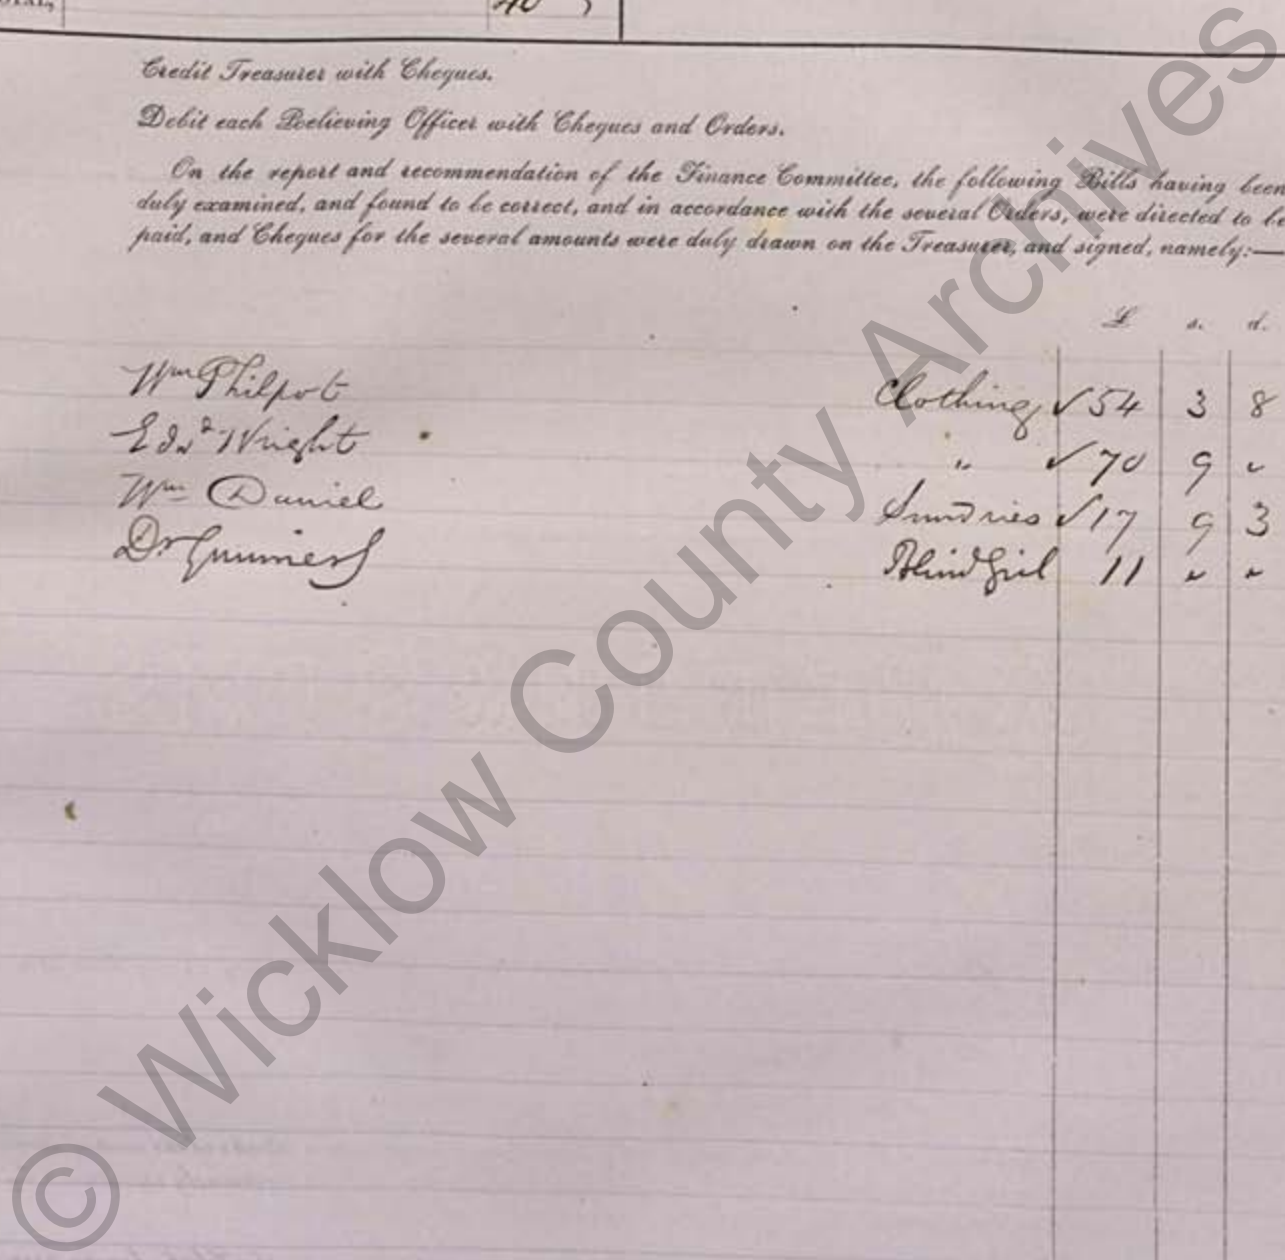 TOTAL,
40
Credit Treasurer with Cheques.
Debit each Relieving Officer with Cheques and Orders.
On the report and recommendation of the Finance Committee, the following Bills having been
duly examined, and found to be correct, and in accordance with the several Orders, were directed to be
paid, and Cheques for the several amounts were duly drawn on the Treasurer, and signed, namely:—
£ s. d.
Wm Philpot Clothing ✓ 54 3 8
Edwd Wright " ✓ 70 9 "
Wm Daniel Sundries ✓ 17 9 3
Dr Blind Girl 11 " "
© Wicklow County Archives